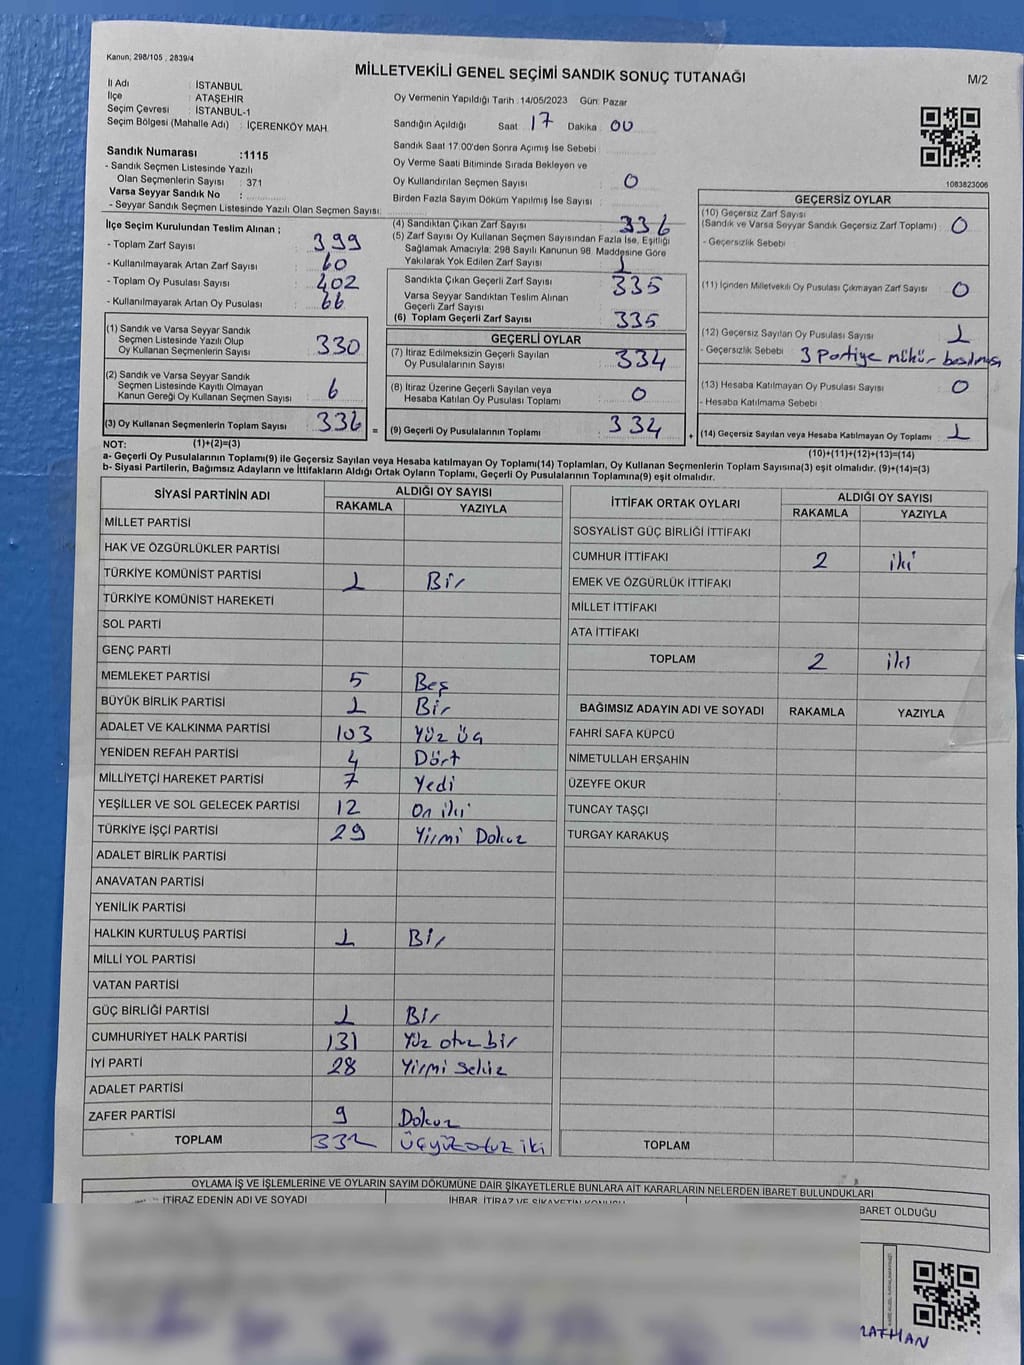 Kanun; 298/105 , 2839/4
MİLLETVEKİLİ GENEL SEÇİMİ SANDIK SONUÇ TUTANAĞI
M/2
İl Adı : İSTANBUL
İlçe : ATAŞEHİR
Seçim Çevresi : İSTANBUL-1
Seçim Bölgesi (Mahalle Adı) : İÇERENKÖY MAH.
Oy Vermenin Yapıldığı Tarih : 14/05/2023 Gün: Pazar
Sandığın Açıldığı Saat 17 Dakika 00
Sandık Saat 17:00'den Sonra Açımış İse Sebebi :
Oy Verme Saati Bitiminde Sırada Bekleyen ve
Oy Kullandırılan Seçmen Sayısı : 0
Birden Fazla Sayım Döküm Yapılmış İse Sayısı :
Sandık Numarası :1115
- Sandık Seçmen Listesinde Yazılı
Olan Seçmenlerin Sayısı : 371
Varsa Seyyar Sandık No :
- Seyyar Sandık Seçmen Listesinde Yazılı Olan Seçmen Sayısı:
1083823006
İlçe Seçim Kurulundan Teslim Alınan ;
- Toplam Zarf Sayısı : 399
- Kullanılmayarak Artan Zarf Sayısı : 60
- Toplam Oy Pusulası Sayısı : 402
- Kullanılmayarak Artan Oy Pusulası : 66
(1) Sandık ve Varsa Seyyar Sandık
Seçmen Listesinde Yazılı Olup
Oy Kullanan Seçmenlerin Sayısı : 330
(2) Sandık ve Varsa Seyyar Sandık
Seçmen Listesinde Kayıtlı Olmayan
Kanun Gereği Oy Kullanan Seçmen Sayısı : 6
(3) Oy Kullanan Seçmenlerin Toplam Sayısı : 336 =
(1)+(2)=(3)
(4) Sandıktan Çıkan Zarf Sayısı : 336
(5) Zarf Sayısı Oy Kullanan Seçmen Sayısından Fazla İse, Eşitliği
Sağlamak Amacıyla; 298 Sayılı Kanunun 98. Maddesine Göre
Yakılarak Yok Edilen Zarf Sayısı : 1
Sandıkta Çıkan Geçerli Zarf Sayısı : 335
Varsa Seyyar Sandıktan Teslim Alınan
Geçerli Zarf Sayısı :
(6) Toplam Geçerli Zarf Sayısı : 335
GEÇERLİ OYLAR
(7) İtiraz Edilmeksizin Geçerli Sayılan
Oy Pusulalarının Sayısı : 334
(8) İtiraz Üzerine Geçerli Sayılan veya
Hesaba Katılan Oy Pusulası Toplamı : 0
(9) Geçerli Oy Pusulalarının Toplamı : 334 +
GEÇERSİZ OYLAR
(10) Geçersiz Zarf Sayısı
(Sandık ve Varsa Seyyar Sandık Geçersiz Zarf Toplamı) : 0
- Geçersizlik Sebebi :
(11) İçinden Milletvekili Oy Pusulası Çıkmayan Zarf Sayısı : 0
(12) Geçersiz Sayılan Oy Pusulası Sayısı : 1
- Geçersizlik Sebebi : 3 Partiye mühür basılması
(13) Hesaba Katılmayan Oy Pusulası Sayısı : 0
- Hesaba Katılmama Sebebi :
(14) Geçersiz Sayılan veya Hesaba Katılmayan Oy Toplamı : 1
(10)+(11)+(12)+(13)=(14)
NOT:
a- Geçerli Oy Pusulalarının Toplamı(9) ile Geçersiz Sayılan veya Hesaba katılmayan Oy Toplamı(14) Toplamları, Oy Kullanan Seçmenlerin Toplam Sayısına(3) eşit olmalıdır. (9)+(14)=(3)
b- Siyasi Partilerin, Bağımsız Adayların ve İttifakların Aldığı Ortak Oyların Toplamı, Geçerli Oy Pusulalarının Toplamına(9) eşit olmalıdır.
SİYASİ PARTİNİN ADI ALDIĞI OY SAYISI
RAKAMLA YAZIYLA
MİLLET PARTİSİ
HAK VE ÖZGÜRLÜKLER PARTİSİ
TÜRKİYE KOMÜNİST PARTİSİ 1 Bir
TÜRKİYE KOMÜNİST HAREKETİ
SOL PARTİ
GENÇ PARTİ
MEMLEKET PARTİSİ 5 Beş
BÜYÜK BİRLİK PARTİSİ 1 Bir
ADALET VE KALKINMA PARTİSİ 103 Yüz Üç
YENİDEN REFAH PARTİSİ 4 Dört
MİLLİYETÇİ HAREKET PARTİSİ 7 Yedi
YEŞİLLER VE SOL GELECEK PARTİSİ 12 On iki
TÜRKİYE İŞÇİ PARTİSİ 29 Yirmi Dokuz
ADALET BİRLİK PARTİSİ
ANAVATAN PARTİSİ
YENİLİK PARTİSİ
HALKIN KURTULUŞ PARTİSİ 1 Bir
MİLLİ YOL PARTİSİ
VATAN PARTİSİ
GÜÇ BİRLİĞİ PARTİSİ 1 Bir
CUMHURİYET HALK PARTİSİ 131 Yüz otuz bir
İYİ PARTİ 28 Yirmi Sekiz
ADALET PARTİSİ
ZAFER PARTİSİ 9 Dokuz
TOPLAM 332 Üçyüz otuz iki
İTTİFAK ORTAK OYLARI ALDIĞI OY SAYISI
RAKAMLA YAZIYLA
SOSYALİST GÜÇ BİRLİĞİ İTTİFAKI
CUMHUR İTTİFAKI 2 iki
EMEK VE ÖZGÜRLÜK İTTİFAKI
MİLLET İTTİFAKI
ATA İTTİFAKI
TOPLAM 2 iki
BAĞIMSIZ ADAYIN ADI VE SOYADI RAKAMLA YAZIYLA
FAHRİ SAFA KÜPCÜ
NİMETULLAH ERŞAHİN
ÜZEYFE OKUR
TUNCAY TAŞÇI
TURGAY KARAKUŞ
TOPLAM
OYLAMA İŞ VE İŞLEMLERİNE VE OYLARIN SAYIM DÖKÜMÜNE DAİR ŞİKAYETLERLE BUNLARA AİT KARARLARIN NELERDEN İBARET BULUNDUKLARI
İTİRAZ EDENİN ADI VE SOYADI İHBAR, İTİRAZ VE ŞİKAYETİN KONUSU BARET OLDUĞU